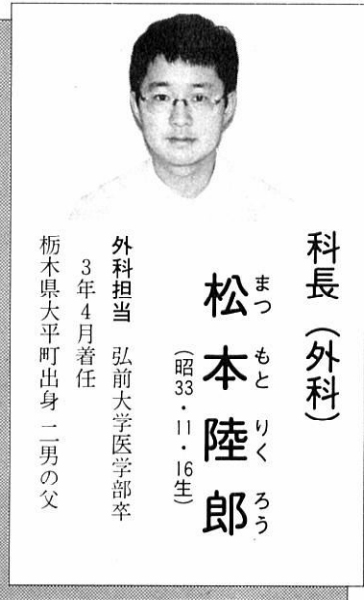 科長（外科）
まつ もと りく ろう
松本陸郎
（昭33・11・16生）
外科担当 弘前大学医学部卒
3年4月着任
栃木県大平町出身 二男の父